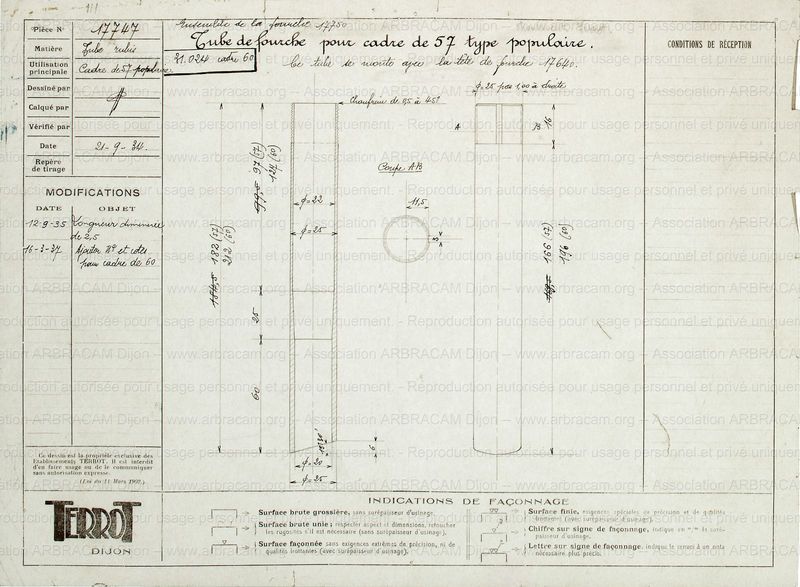 Pièce N° 17747
Matière Tube rubis
Utilisation principale Cadre de 57 populaire
Dessiné par
Calqué par
Vérifié par
Date 21-9-34.
Repère de tirage
MODIFICATIONS
DATE OBJET
12-9-35 Longueur diminuée
de 2,5
16-3-37 Ajouter N° et cotes
pour cadre de 60
Ce dessin est la propriété exclusive des
Etablissements TERROT. Il est interdit
d'en faire usage ou de le communiquer
sans autorisation expresse.
(Loi du 11 Mars 1902.)
TERROT
DIJON
Ensemble de la fourche 17750
Tube de fourche pour cadre de 57 type populaire.
21.024 cadre 60
Ce tube se monte avec la tête de fourche 17640.
CONDITIONS DE RÉCEPTION
Chanfrein de 0,5 à 45°
φ=25 pas 1,00 à droite
A
B
16
Coupe AB
11,5
5
φ=22
φ=25
(60) 124
(57) 94
(60) 212
(57) 182
(60) 196
(57) 166
25
60
6
φ=20
φ=25
INDICATIONS DE FAÇONNAGE
Surface brute grossière, sans surépaisseur d'usinage.
Surface brute unie ; respecter aspect et dimensions, retoucher
les rugosités s'il est nécessaire (sans surépaisseur d'usinage).
Surface façonnée sans exigences extrêmes de précision, ni de
qualités frottantes (avec surépaisseur d'usinage).
Surface finie, exigences spéciales de précision et de qualités
frottantes (avec surépaisseur d'usinage).
Chiffre sur signe de façonnage, indique en m/m la surépaisseur d'usinage.
Lettre sur signe de façonnage, indique le renvoi à un nota
nécessaire plus précis.
www.arbracam.org – Association ARBRACAM Dijon – Reproduction autorisée pour usage personnel et privé uniquement.